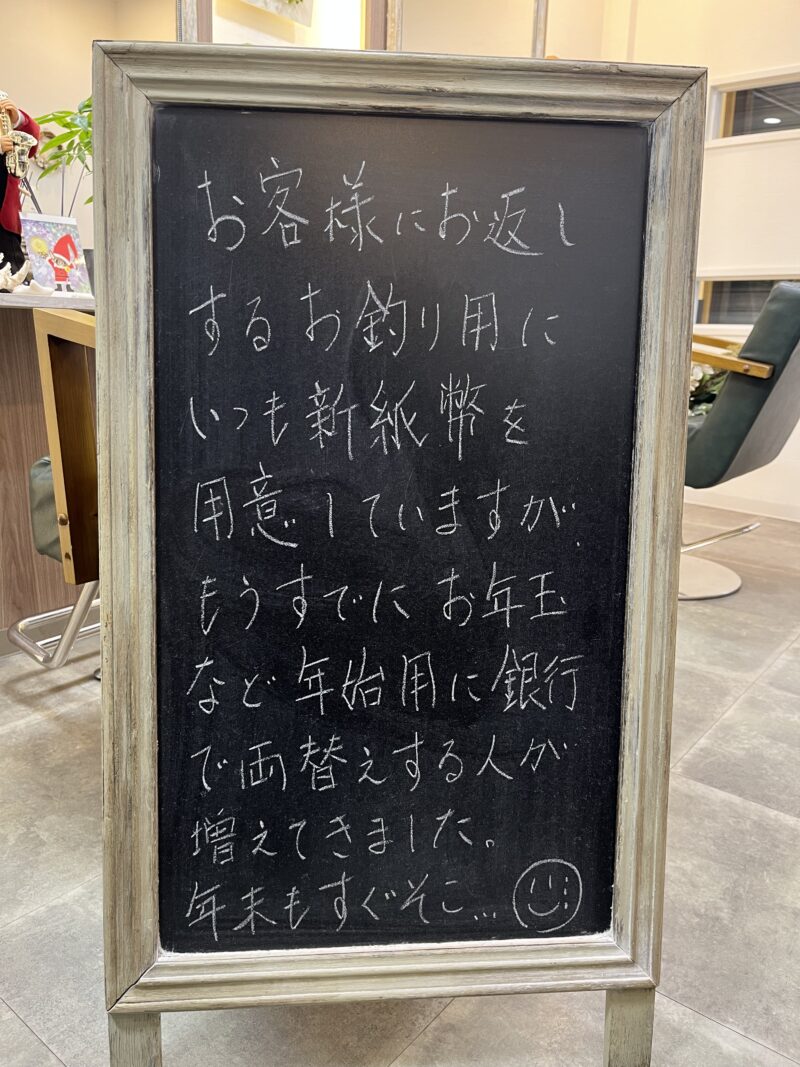 お客様にお返し
するお釣り用に
いつも新紙幣を
用意していますが、
もうすでにお年玉
など年始用に銀行
で両替えする人が
増えてきました。
年末もすぐそこ...